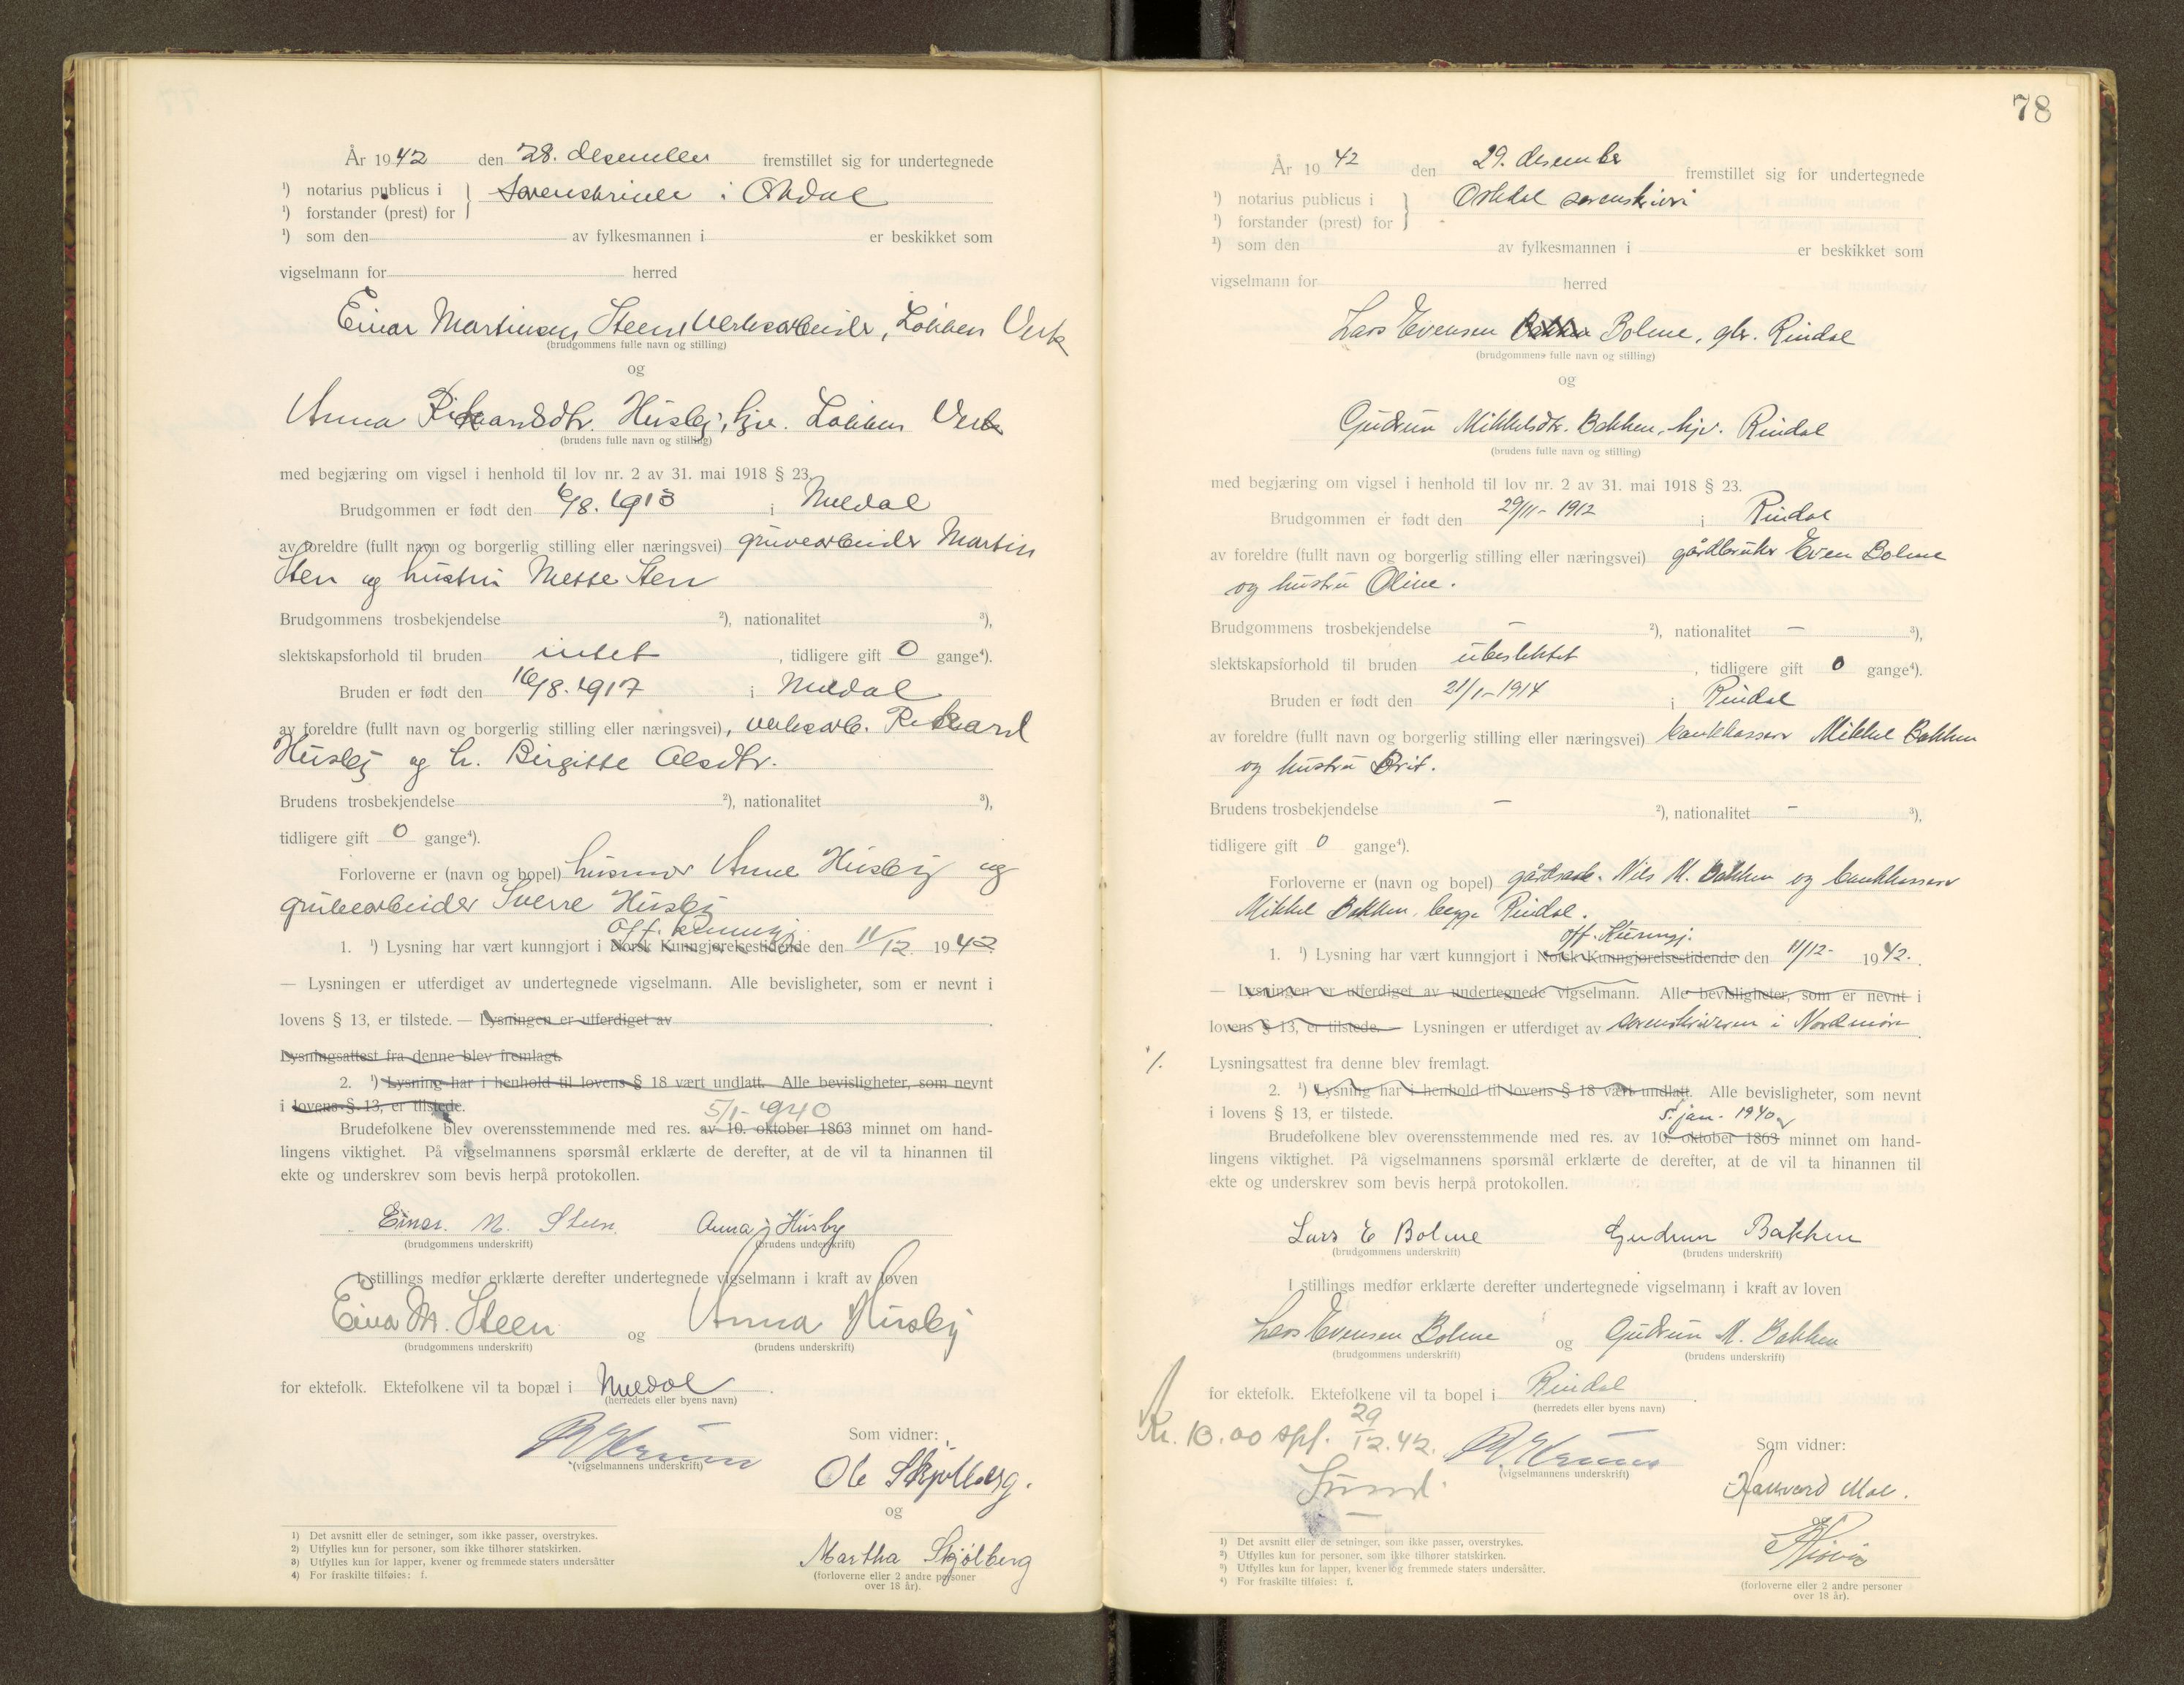 År 1942 den 28. desember fremstillet sig for undertegnede
¹) notarius publicus i
Sorenskriver i Orkdal
¹) forstander (prest) for
¹) som den av fylkesmannen i er beskikket som
vigselmann for herred
Einar Martinsen Steen, Verksarbeider, Løkken Verk
(brudgommens fulle navn og stilling)
og
Anna Rikardsdtr. Husby, hjv. Løkken Verk
(brudens fulle navn og stilling)
med begjæring om vigsel i henhold til lov nr. 2 av 31. mai 1918 § 23.
Brudgommen er født den 6/8. 1913 i Meldal
av foreldre (fullt navn og borgerlig stilling eller næringsvei) gruvearbeider Martin
Sten og hustru Mette Sten
Brudgommens trosbekjendelse ²), nationalitet ³),
slektskapsforhold til bruden intet, tidligere gift 0 gange⁴).
Bruden er født den 16/8. 1917 i Meldal
av foreldre (fullt navn og borgerlig stilling eller næringsvei), verksarb. Rikard
Husby og h. Birgitte Olsdtr.
Brudens trosbekjendelse ²), nationalitet ³),
tidligere gift 0 gange⁴).
Forloverne er (navn og bopel) husmor Anne Husby og
gruvearbeider Sverre Husby
off. kunngj.
1. ¹) Lysning har vært kunngjort i Norsk Kunngjørelsestidende den 11/12. 1942.
— Lysningen er utferdiget av undertegnede vigselmann. Alle bevisligheter, som er nevnt i
lovens § 13, er tilstede. — Lysningen er utferdiget av
Lysningsattest fra denne blev fremlagt.
2. ¹) Lysning har i henhold til lovens § 18 vært undlatt. Alle bevisligheter, som nevnt
i lovens § 13, er tilstede.
5/1-1940
Brudefolkene blev overensstemmende med res. av 10. oktober 1863 minnet om hand-
lingens viktighet. På vigselmannens spørsmål erklærte de derefter, at de vil ta hinannen til
ekte og underskrev som bevis herpå protokollen.
Einar. M. Steen. Anna Husby
(brudgommens underskrift) (brudens underskrift)
I stillings medfør erklærte derefter undertegnede vigselmann i kraft av loven
Einar M. Steen og Anna Husby
(brudgommens underskrift) (brudens underskrift)
for ektefolk. Ektefolkene vil ta bopæl i Meldal.
(herredets eller byens navn)
Som vidner:
(vigselmannens underskrift)
Ole Skjølberg.
og
Martha Skjølberg
(forloverne eller 2 andre personer
over 18 år).
1) Det avsnitt eller de setninger, som ikke passer, overstrykes.
2) Utfylles kun for personer, som ikke tilhører statskirken.
3) Utfylles kun for lapper, kvener og fremmede staters undersåtter
4) For fraskilte tilføies: f.
78
År 1942 den 29. desember fremstillet sig for undertegnede
¹) notarius publicus i
Orkdal sorenskriveri
¹) forstander (prest) for
¹) som den av fylkesmannen i er beskikket som
vigselmann for herred
Lars Evensen Bakken Bolme, gbr. Rindal
(brudgommens fulle navn og stilling)
og
Gudrun Mikkelsdtr. Bakken, hjv. Rindal
(brudens fulle navn og stilling)
med begjæring om vigsel i henhold til lov nr. 2 av 31. mai 1918 § 23.
Brudgommen er født den 29/11-1912 i Rindal
av foreldre (fullt navn og borgerlig stilling eller næringsvei) gårdbruker Even Bolme
og hustru Oline.
Brudgommens trosbekjendelse - ²), nationalitet - ³),
slektskapsforhold til bruden ubeslektet, tidligere gift 0 gange⁴).
Bruden er født den 21/1-1914 i Rindal
av foreldre (fullt navn og borgerlig stilling eller næringsvei) bankkasser Mikkel Bakken
og hustru Brit.
Brudens trosbekjendelse - ²), nationalitet - ³),
tidligere gift 0 gange⁴).
Forloverne er (navn og bopel) gårdsarb. Nils M. Bakken og bankkasser
Mikkel Bakken, begge Rindal.
off. Kunngj.
1. ¹) Lysning har vært kunngjort i Norsk Kunngjørelsestidende den 11/12- 1942.
— Lysningen er utferdiget av undertegnede vigselmann. Alle bevisligheter, som er nevnt i
lovens § 13, er tilstede. — Lysningen er utferdiget av sorenskriveren i Nordmøre.
Lysningsattest fra denne blev fremlagt.
2. ¹) Lysning har i henhold til lovens § 18 vært undlatt. Alle bevisligheter, som nevnt
i lovens § 13, er tilstede.
5. jan. 1940
Brudefolkene blev overensstemmende med res. av 10. oktober 1863 minnet om hand-
lingens viktighet. På vigselmannens spørsmål erklærte de derefter, at de vil ta hinannen til
ekte og underskrev som bevis herpå protokollen.
Lars E Bolme Gudrun Bakken
(brudgommens underskrift) (brudens underskrift)
I stillings medfør erklærte derefter undertegnede vigselmann i kraft av loven
Lars Evensen Bolme og Gudrun M. Bakken
(brudgommens underskrift) (brudens underskrift)
for ektefolk. Ektefolkene vil ta bopel i Rindal.
(herredets eller byens navn)
Kr. 13.00 spf. 29/12.42.
Som vidner:
(vigselmannens underskrift)
Hallvard Moe.
og
(forloverne eller 2 andre personer
over 18 år).
¹) Det avsnitt eller de setninger, som ikke passer, overstrykes.
²) Utfylles kun for personer, som ikke tilhører statskirken.
³) Utfylles kun for lapper, kvener og fremmede staters undersåtter.
⁴) For fraskilte tilføies: f.